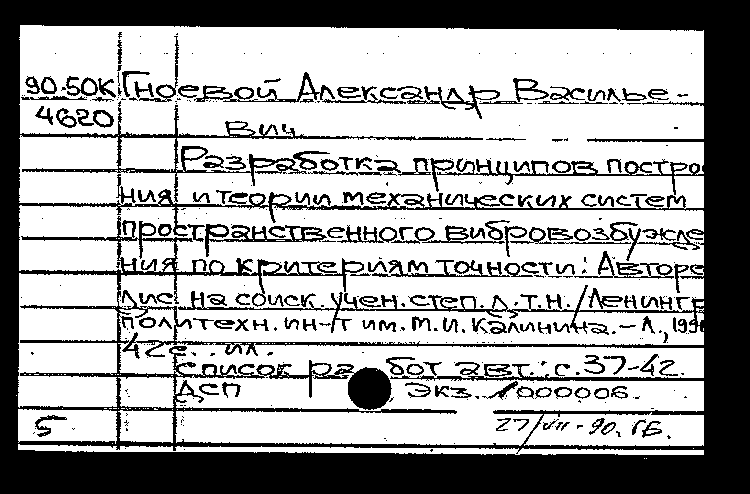 90-50К Гноевой Александр Василье-
4620 вич.
Разработка принципов постро
ния и теории механических систем
пространственного вибровозбужде
ния по критериям точности: Авторе
дис. на соиск. учен. степ. д.т.н. / Ленингр
политехн. ин-т им. М.И. Калинина. - Л., 199
42с., ил.
Список работ авт.: с. 37-42.
ДСП Экз. 000006.
5 27/VII-90. ГБ.